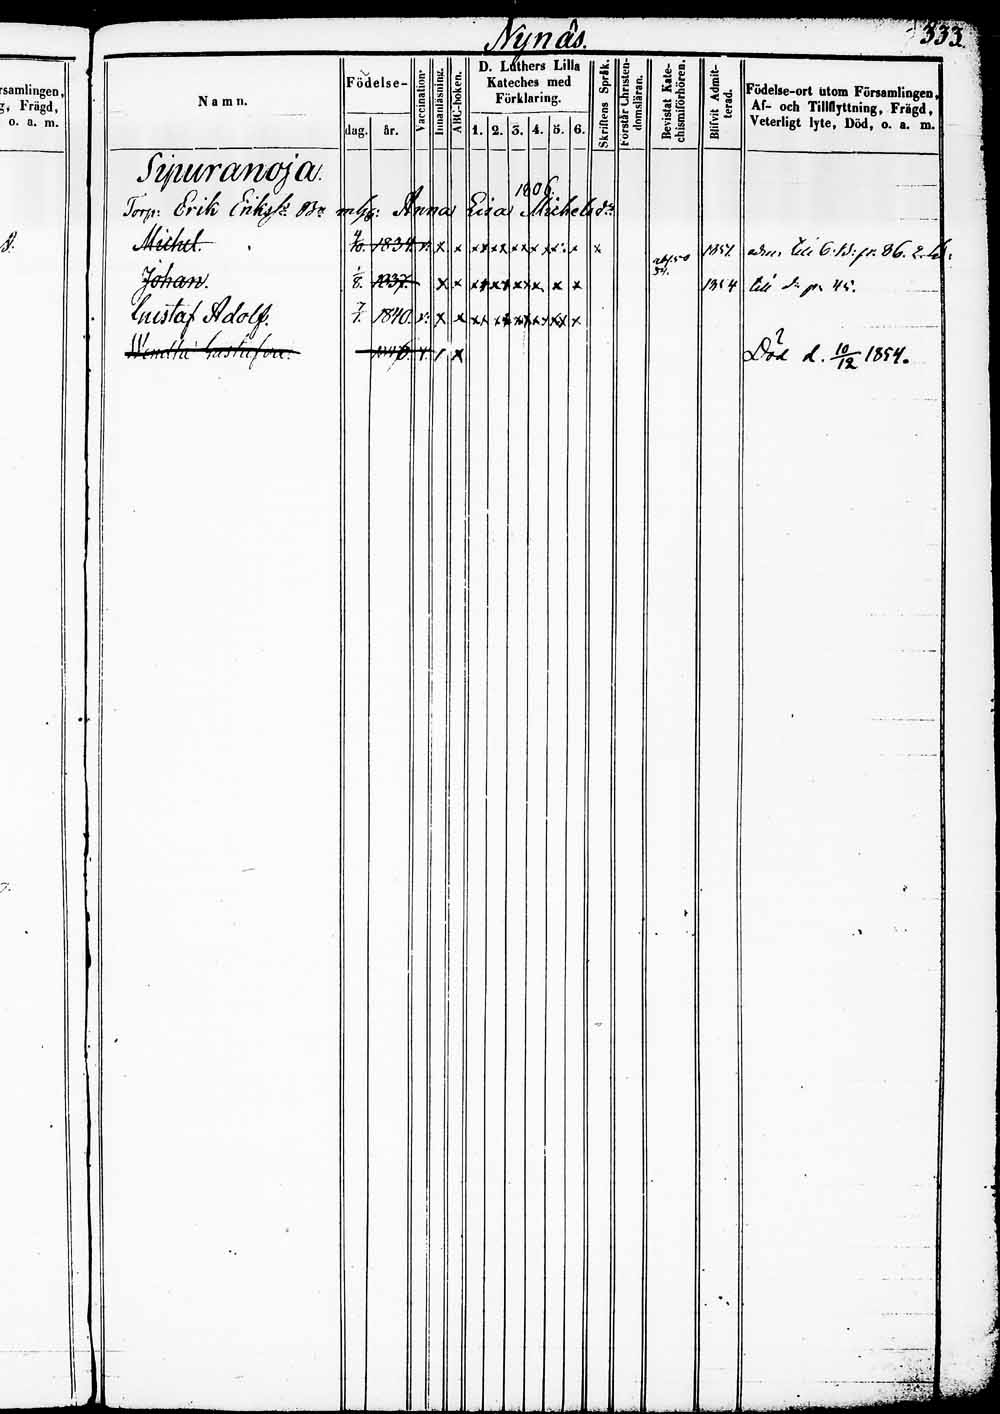 Nynäs.
333.
rsamlingen,
g, Frägd,
o. a. m.
Namn.
Födelse-
dag. år.
Vaccination.
Innanläsning.
ABC-boken.
D. Luthers Lilla
Kateches med
Förklaring.
1. 2. 3. 4. 5. 6.
Skriftens Språk.
Förstår Christen-
domsläran.
Bevistat Kate-
chismiförhören.
Blifvit Admit-
terad.
Födelse-ort utom Församlingen,
Af- och Tillflyttning, Frägd,
Veterligt lyte, Död, o. a. m.
Sipuranoja.
1806.
Torp: Erik Eriks Anna Lisa Michelsdr
Michel. 1834. v. x x x x x x x x x 1851. till
Johan. 1/8. 1837. x x x x x x x x 1854 till
Gustaf Adolf. 7/1. 1840. v. x x x x x x x x
x Död d. 10/12 1854.